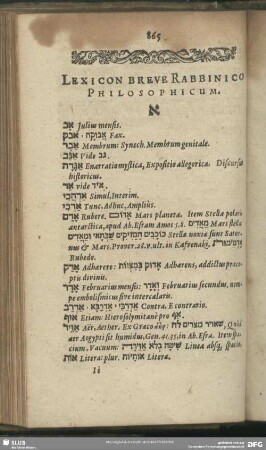 865
LEXICON BREVE RABBINICO
PHILOSOPHICUM.
א
אב Julius mensis.
אבוקה Fax.
אבר Membrum: Synech. Membrum genitale.
אגב Vide גב.
אגדה Enarratio mystica, Expositio allegorica: Discursus
historicus.
אד vide איד.
Simul, Interim.
Tunc, Adhuc, Amplius.
אדם Rubere. Mars planeta. Item Stella polaris
antarctica, apud Ab. Esram Amos 5.8. מאדים Mars stella
כוכבים המזיקים שבתאי ומאדים Stella noxia sunt Satur-
nus & Mars. Prover.28. v. ult. in Kafvenaki.
Rubedo.
אדק Adhærere: אדוק במצוות Adhærens, addictus præce-
ptis divinis.
אדר Februarius mensis: ואדר Februarius secundus, nem-
pe embolismicus sive intercalaris.
Contra. E contrario.
אוף Etiam: Hierosolymitanè pro אף.
אויר Aër. Æther. Ex Græco ἀήρ: Quia
aër Ægypti sit humidus, Gen.41.35. in Ab. Esra. Item Spa-
cium, Vacuum: Linea absq; spacio.
אות Litera: plur. אותיות Literæ.
Ii
SLUB
DFG